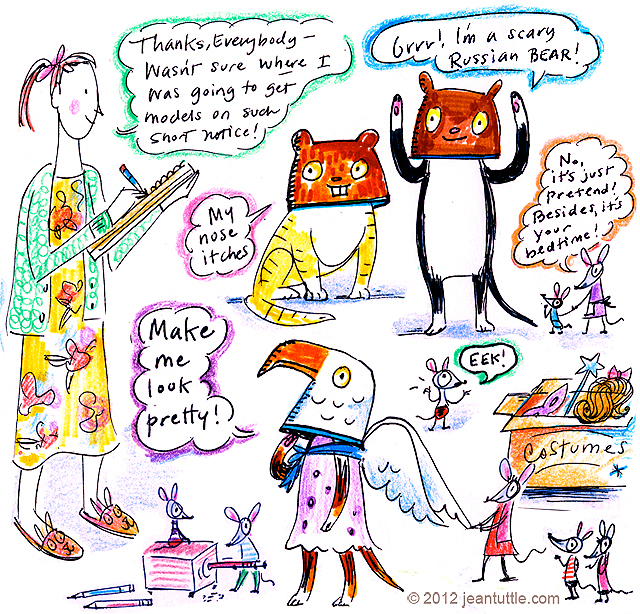 Thanks, Everybody—
Wasn't sure where I
was going to get
models on such
short notice!
Grrr! I'm a scary
Russian BEAR!
No,
it's just
pretend!
Besides, it's
your
bedtime!
My
nose
itches
Make
me
look
pretty!
EEK!
Costumes
© 2012 jeantuttle.com